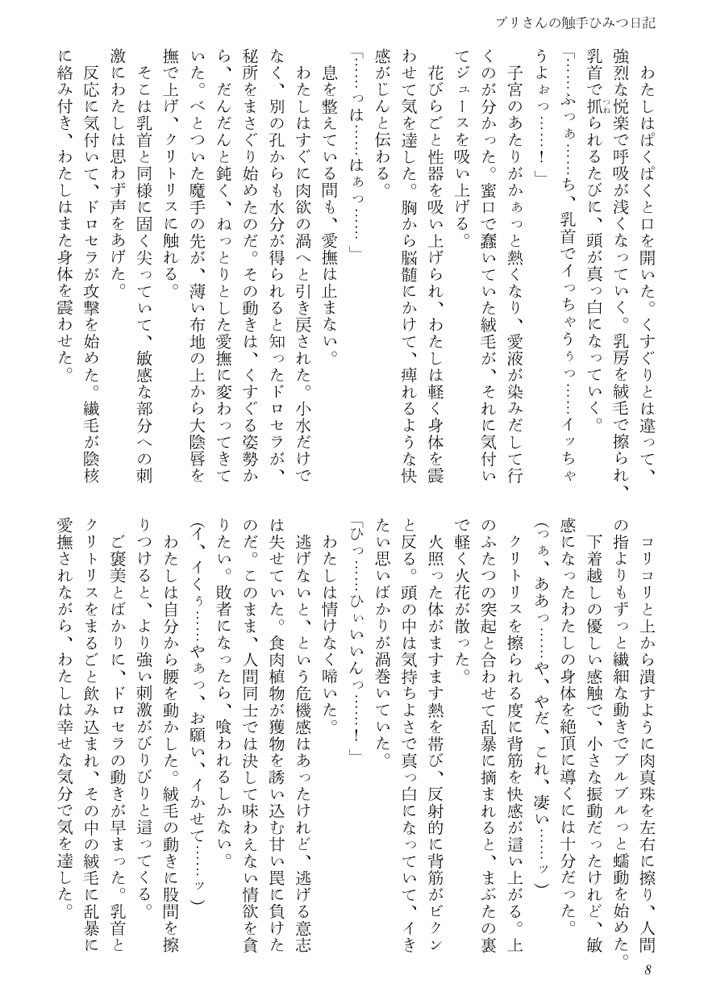 プリさんの触手ひみつ日記
わたしはぱくぱくと口を開いた。くすぐりとは違って、
強烈な悦楽で呼吸が浅くなっていく。乳房を絨毛で擦られ、
乳首で抓られるたびに、頭が真っ白になっていく。
「……ふっぁ……ち、乳首でイっちゃうぅっ……イッちゃ
うよぉっ……！」
子宮のあたりがかぁっと熱くなり、愛液が染みだして行
くのが分かった。蜜口で蠢いていた絨毛が、それに気付い
てジュースを吸い上げる。
花びらごと性器を吸い上げられ、わたしは軽く身体を震
わせて気を達した。胸から脳髄にかけて、痺れるような快
感がじんと伝わる。
「……っは……はぁっ……」
息を整えている間も、愛撫は止まない。
わたしはすぐに肉欲の渦へと引き戻された。小水だけで
なく、別の孔からも水分が得られると知ったドロセラが、
秘所をまさぐり始めたのだ。その動きは、くすぐる姿勢か
ら、だんだんと鈍く、ねっとりとした愛撫に変わってきて
いた。べとついた魔手の先が、薄い布地の上から大陰唇を
撫で上げ、クリトリスに触れる。
そこは乳首と同様に固く尖っていて、敏感な部分への刺
激にわたしは思わず声をあげた。
反応に気付いて、ドロセラが攻撃を始めた。繊毛が陰核
に絡み付き、わたしはまた身体を震わせた。
コリコリと上から潰すように肉真珠を左右に擦り、人間
の指よりもずっと繊細な動きでブルブルっと蠕動を始めた。
下着越しの優しい感触で、小さな振動だったけれど、敏
感になったわたしの身体を絶頂に導くには十分だった。
(つぁ、ああっ……や、やだ、これ、凄い……ッ)
クリトリスを擦られる度に背筋を快感が這い上がる。上
のふたつの突起と合わせて乱暴に摘まれると、まぶたの裏
で軽く火花が散った。
火照った体がますます熱を帯び、反射的に背筋がビクン
と反る。頭の中は気持ちよさで真っ白になっていて、イき
たい思いばかりが渦巻いていた。
「ひっ……ひぃいいんっ……！」
わたしは情けなく啼いた。
逃げないと、という危機感はあったけれど、逃げる意志
は失せていた。食肉植物が獲物を誘い込む甘い罠に負けた
のだ。このまま、人間同士では決して味わえない情欲を貪
りたい。敗者になったら、喰われるしかない。
(イ、イくぅ……やぁっ、お願い、イかせて……ッ)
わたしは自分から腰を動かした。絨毛の動きに股間を擦
りつけると、より強い刺激がびりびりと這ってくる。
ご褒美とばかりに、ドロセラの動きが早まった。乳首と
クリトリスをまるごと飲み込まれ、その中の絨毛に乱暴に
愛撫されながら、わたしは幸せな気分で気を達した。
8